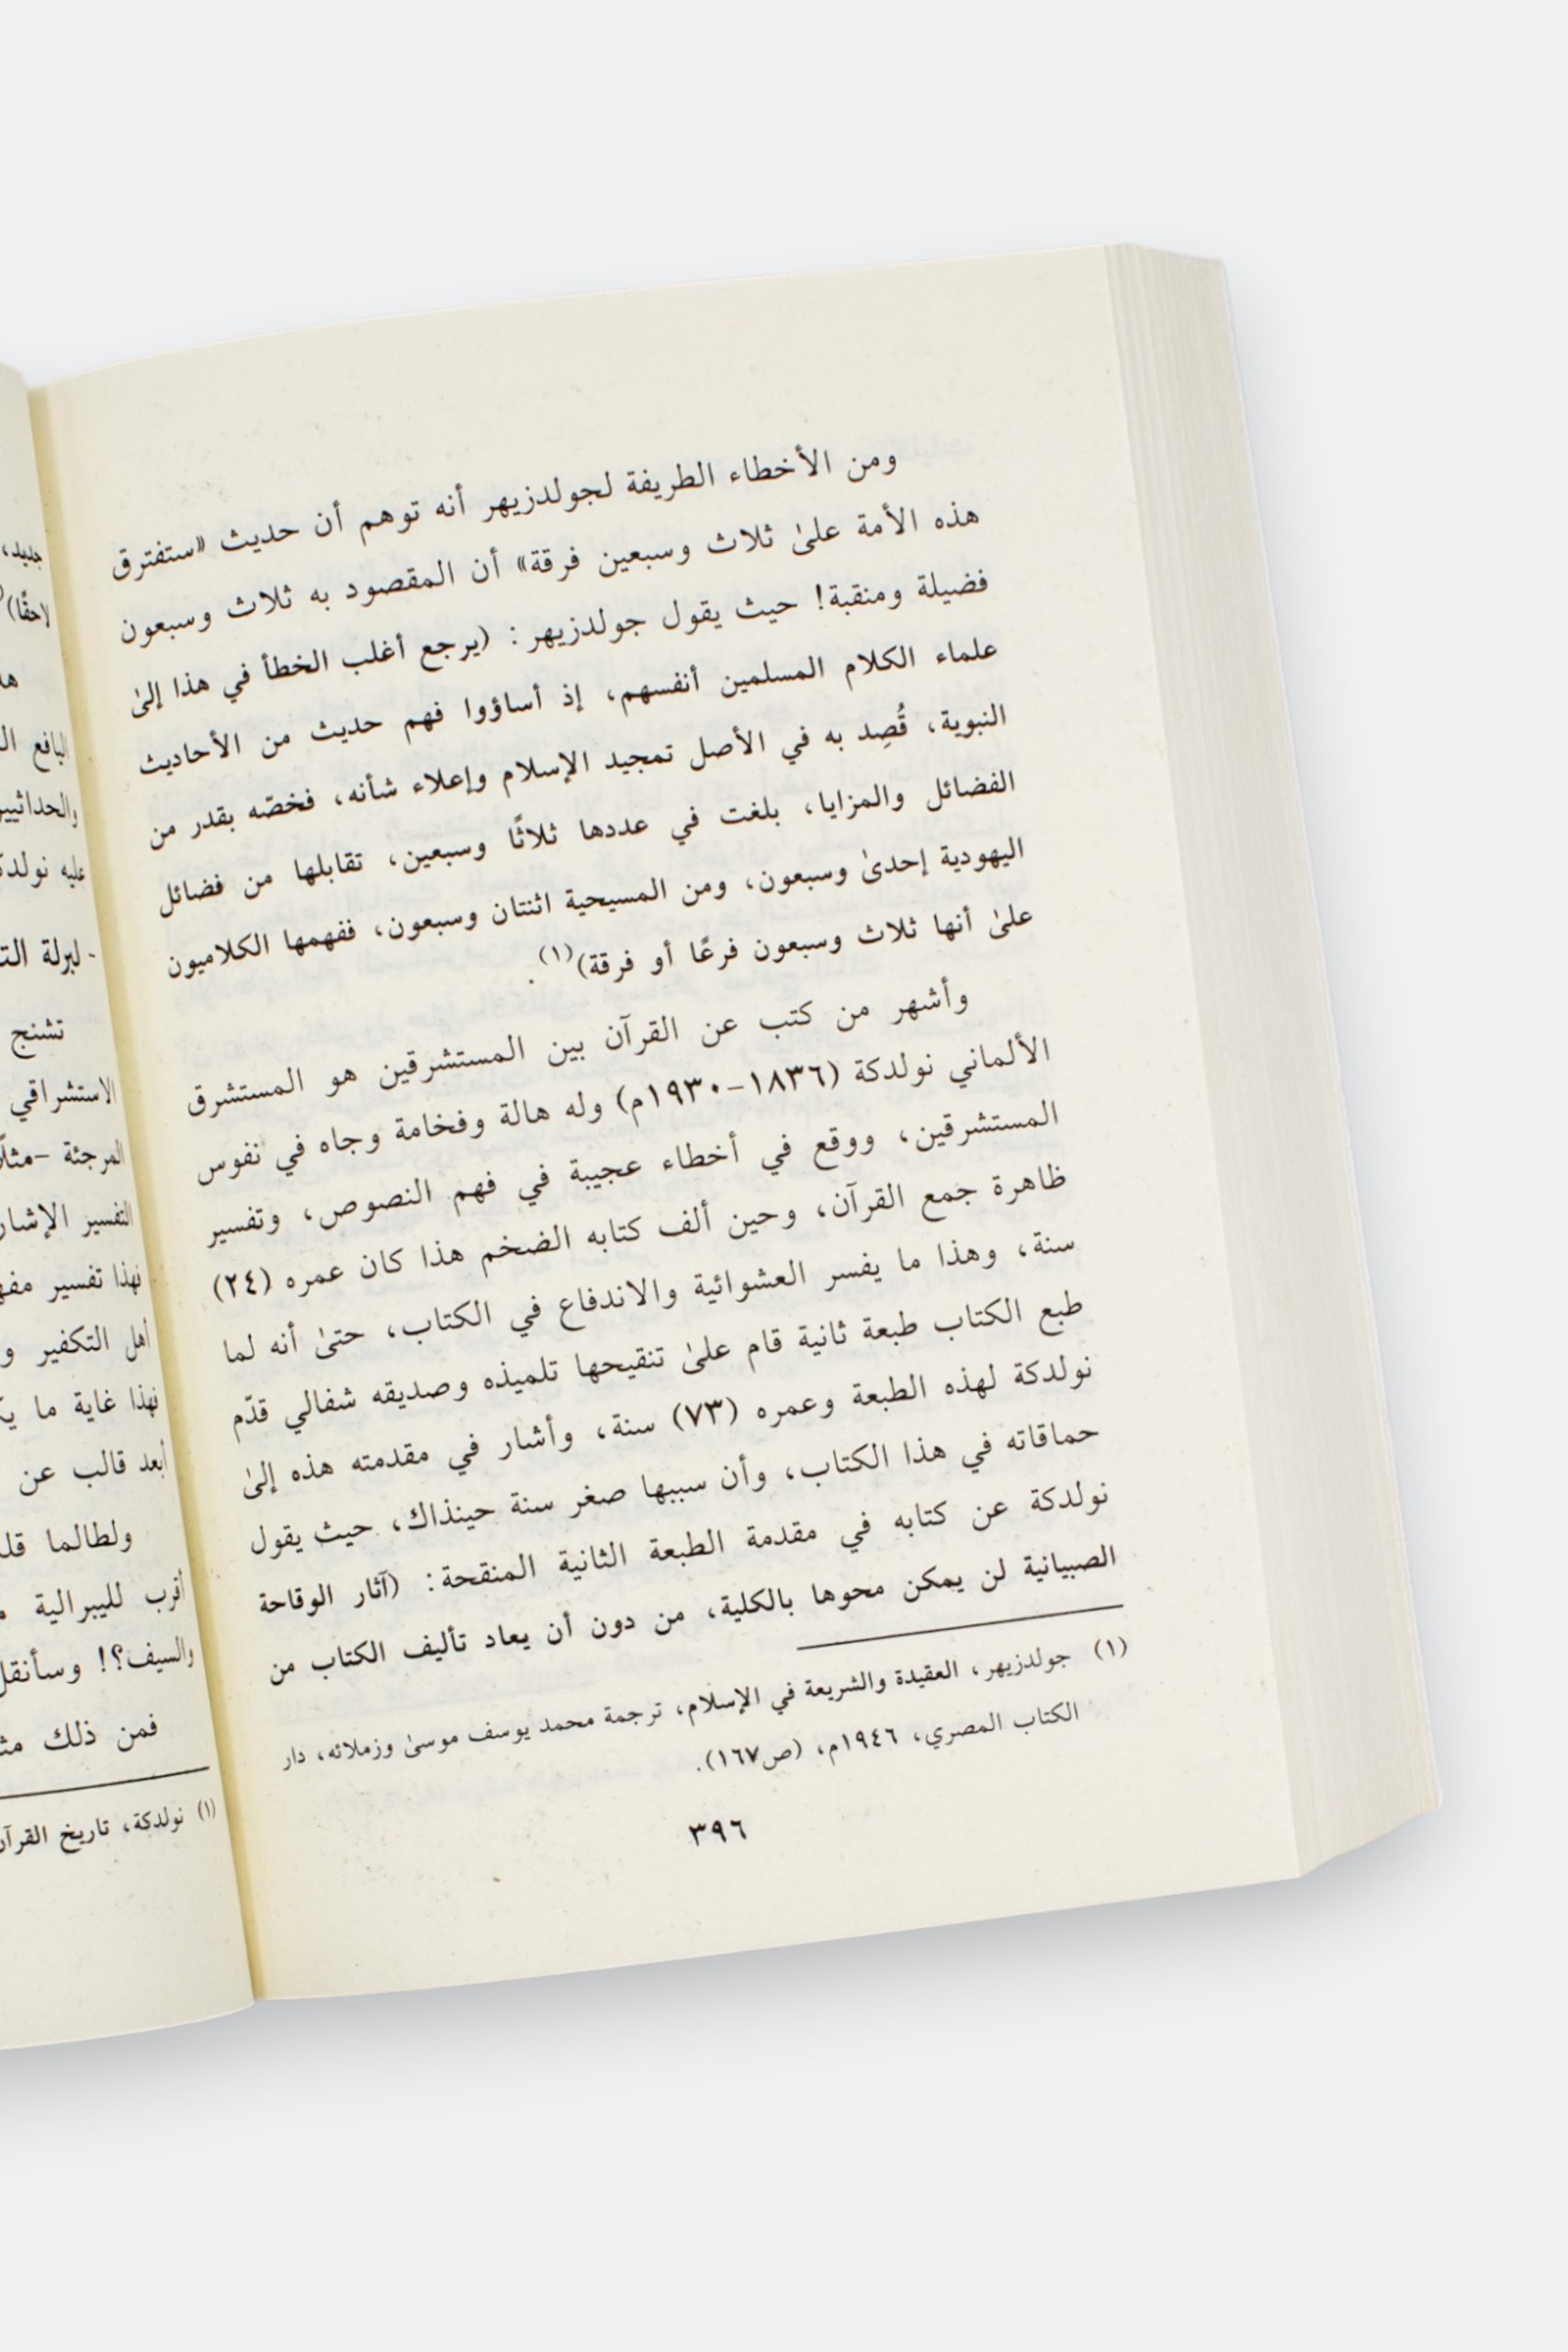 ومن الأخطاء الطريفة لجولدزيهر أنه توهم أن حديث «ستفترق
هذه الأمة علىٰ ثلاث وسبعين فرقة» أن المقصود به ثلاث وسبعون
فضيلة ومنقبة! حيث يقول جولدزيهر: (يرجع أغلب الخطأ في هذا إلىٰ
علماء الكلام المسلمين أنفسهم، إذ أساؤوا فهم حديث من الأحاديث
النبوية، قُصِد به في الأصل تمجيد الإسلام وإعلاء شأنه، فخصّه بقدر من
الفضائل والمزايا، بلغت في عددها ثلاثًا وسبعين، تقابلها من فضائل
اليهودية إحدىٰ وسبعون، ومن المسيحية اثنتان وسبعون، ففهمها الكلاميون
علىٰ أنها ثلاث وسبعون فرعًا أو فرقة)(١).
وأشهر من كتب عن القرآن بين المستشرقين هو المستشرق
الألماني نولدكة (١٨٣٦-١٩٣٠م) وله هالة وفخامة وجاه في نفوس
المستشرقين، ووقع في أخطاء عجيبة في فهم النصوص، وتفسير
ظاهرة جمع القرآن، وحين ألف كتابه الضخم هذا كان عمره (٢٤)
سنة، وهذا ما يفسر العشوائية والاندفاع في الكتاب، حتىٰ أنه لما
طبع الكتاب طبعة ثانية قام علىٰ تنقيحها تلميذه وصديقه شفالي قدّم
نولدكة لهذه الطبعة وعمره (٧٣) سنة، وأشار في مقدمته هذه إلىٰ
حماقاته في هذا الكتاب، وأن سببها صغر سنة حينذاك، حيث يقول
نولدكة عن كتابه في مقدمة الطبعة الثانية المنقحة: (آثار الوقاحة
الصبيانية لن يمكن محوها بالكلية، من دون أن يعاد تأليف الكتاب من
(١) جولدزيهر، العقيدة والشريعة في الإسلام، ترجمة محمد يوسف موسىٰ وزملائه، دار
الكتاب المصري، ١٩٤٦م، (ص١٦٧).
٣٩٦
جديد،
لاحقًا)
والحداثيين
عليه نولدكة
- لبرلة
تشنج
الاستشراقي
المرجئة -مثلًا
التفسير
فهذا تفسير
أهل التكفير
فهذا غاية ما
أبعد قالب عن
ولطالما
أقرب لليبرالية
والسيف؟! وسأنقل
فمن ذلك
(١) نولدكة، تاريخ القرآن